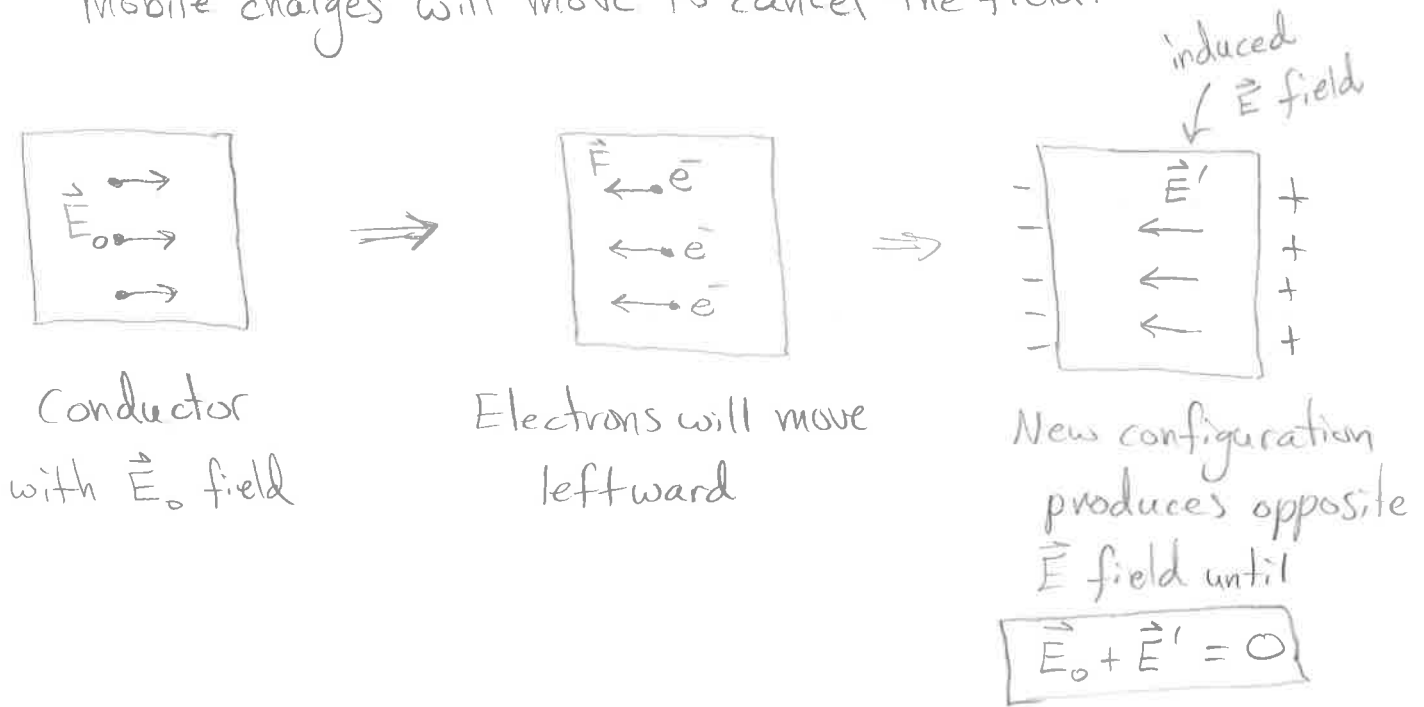 Mobile charges will move to cancel the field.
induced
E⃗ field
E⃗₀
F⃗ e⁻
e⁻
e⁻
E⃗'
- +
- +
- +
- +
-
Conductor
with E⃗₀ field
Electrons will move
leftward
New configuration
produces opposite
E⃗ field until
E⃗₀ + E⃗' = 0